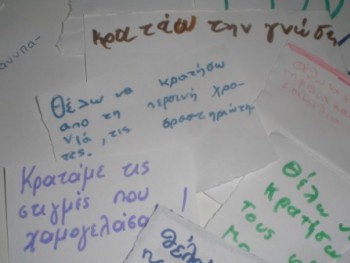 κρατάω την γνώση
Θέλω να κρατήσω
απο τη περσινή χρο-
νιά, τις δραστηριότη-
τες.
Κρατάμε τις
στιγμές που
χαμογελάσα
!
Θέλω ν
κρατήσω
τους
θέλω